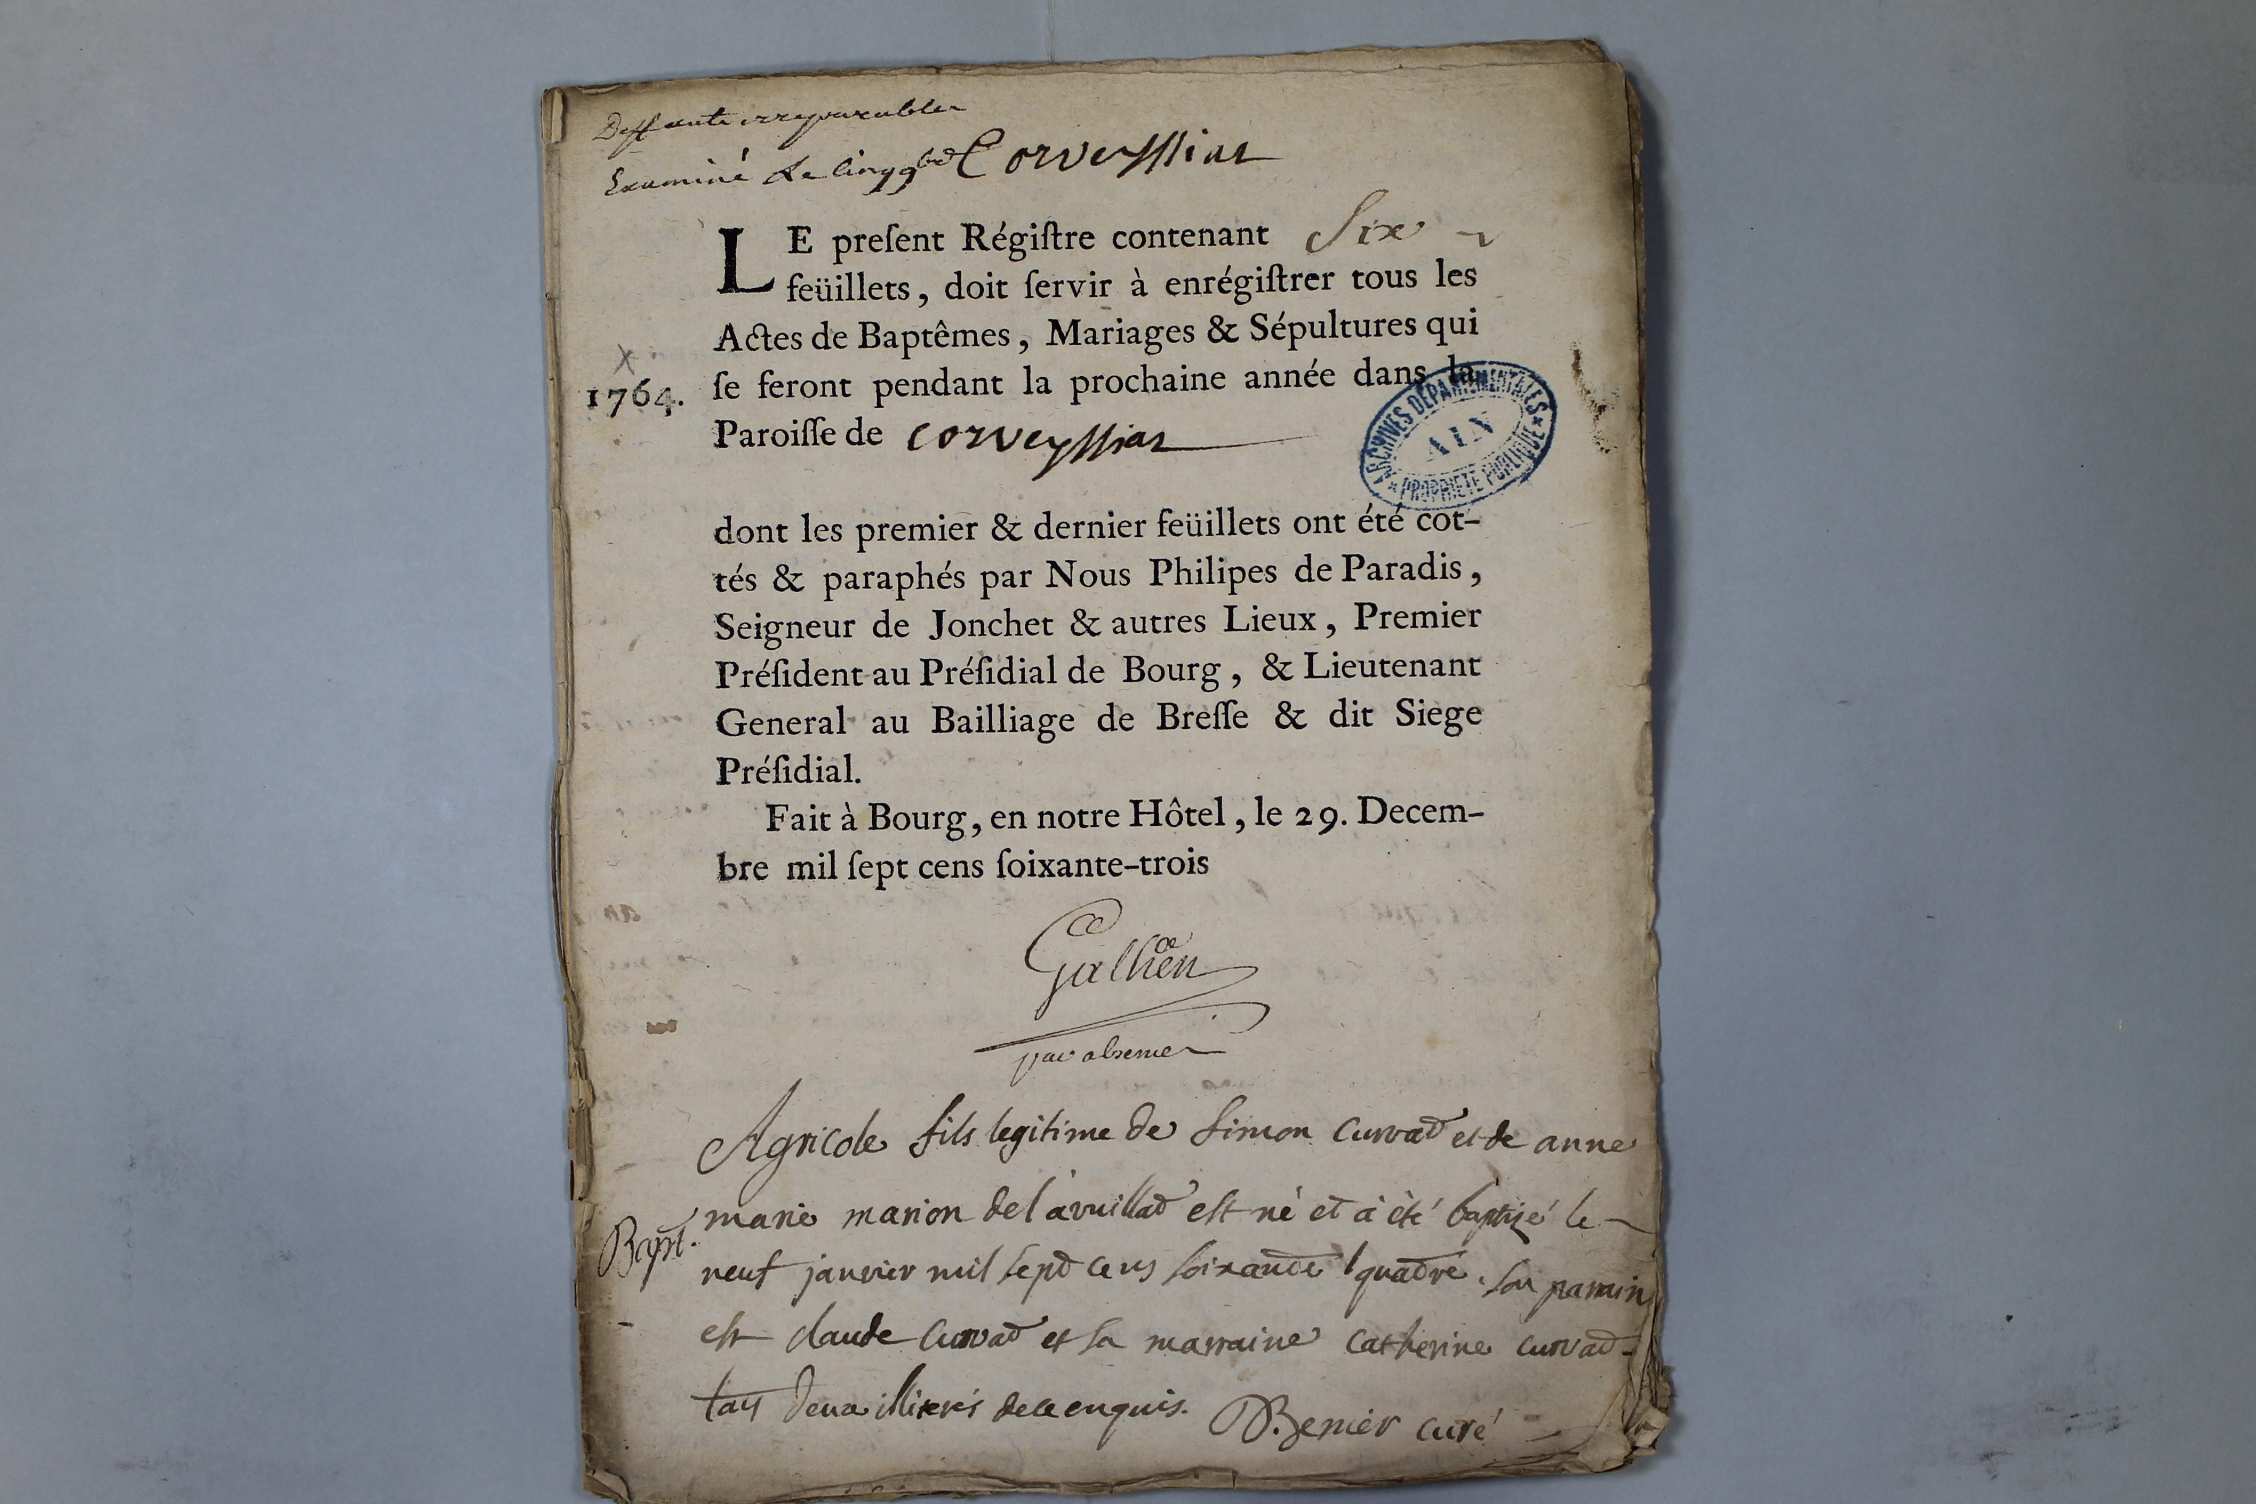 Deffauts irreparables
Examiné Le cinq 9bre Corveyssiat
LE preſent Régiſtre contenant Six
feüillets, doit ſervir à enrégiſtrer tous les
Actes de Baptêmes, Mariages & Sépultures qui
1764. ſe feront pendant la prochaine année dans la
Paroiſſe de Corveyssiat
ARCHIVES DÉPARTEMENTALES
AIN
PROPRIÉTÉ PUBLIQUE
dont les premier & dernier feüillets ont été cot-
tés & paraphés par Nous Philipes de Paradis,
Seigneur de Jonchet & autres Lieux, Premier
Préſident au Préſidial de Bourg, & Lieutenant
General au Bailliage de Breſſe & dit Siege
Préſidial.
Fait à Bourg, en notre Hôtel, le 29. Decem-
bre mil ſept cens ſoixante-trois
Gallien
par absence
Agricole fils legitime de Simon Curvat et de anne
marie marion de lavuillat est né et à été baptizé le
Bapt. neuf janvier mil sept cens soixante quatre. son parrain
est claude Curvat et sa marraine catherine curvat
tous deux illiterés de ce enquis. Benier curé